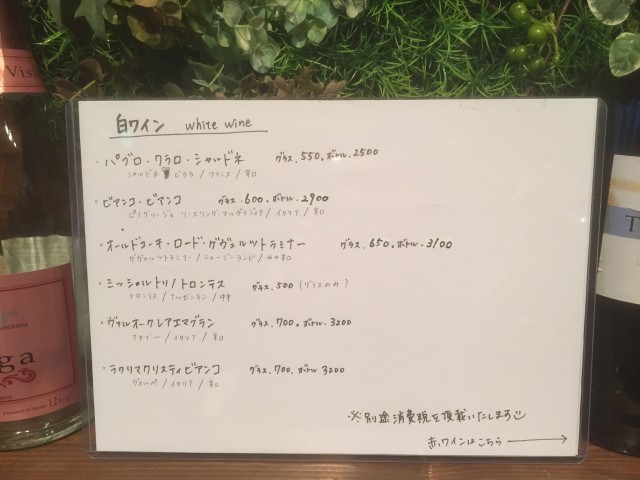 Vis
白ワイン white wine
・パブロ・クラロ・シャルドネ グラス.550.ボトル.2500
ビウラ / フランス / 辛口
・ビアンコ・ビアンコ グラス.600.ボトル.2900
ピノグリージョ.リースリング. / イタリア / 辛口
・オールドコーチ・ロード・ゲヴュルツトラミナー グラス.650.ボトル.3100
ゲヴュルツトラミナー / ニュージーランド / やや辛口
・ミッシェルトリノ トロンテス グラス.500 (グラスのみ)
トロンテス / アルゼンチン / 中辛
・ヴァルオークレアエマブラン グラス.700.ボトル.3200
マカブー / イタリア / 辛口
・ラクリマクリスティビアンコ グラス.700.ボトル 3200
/ イタリア / 辛口
※別途消費税を頂戴いたします
赤ワインはこちら →
ga
T